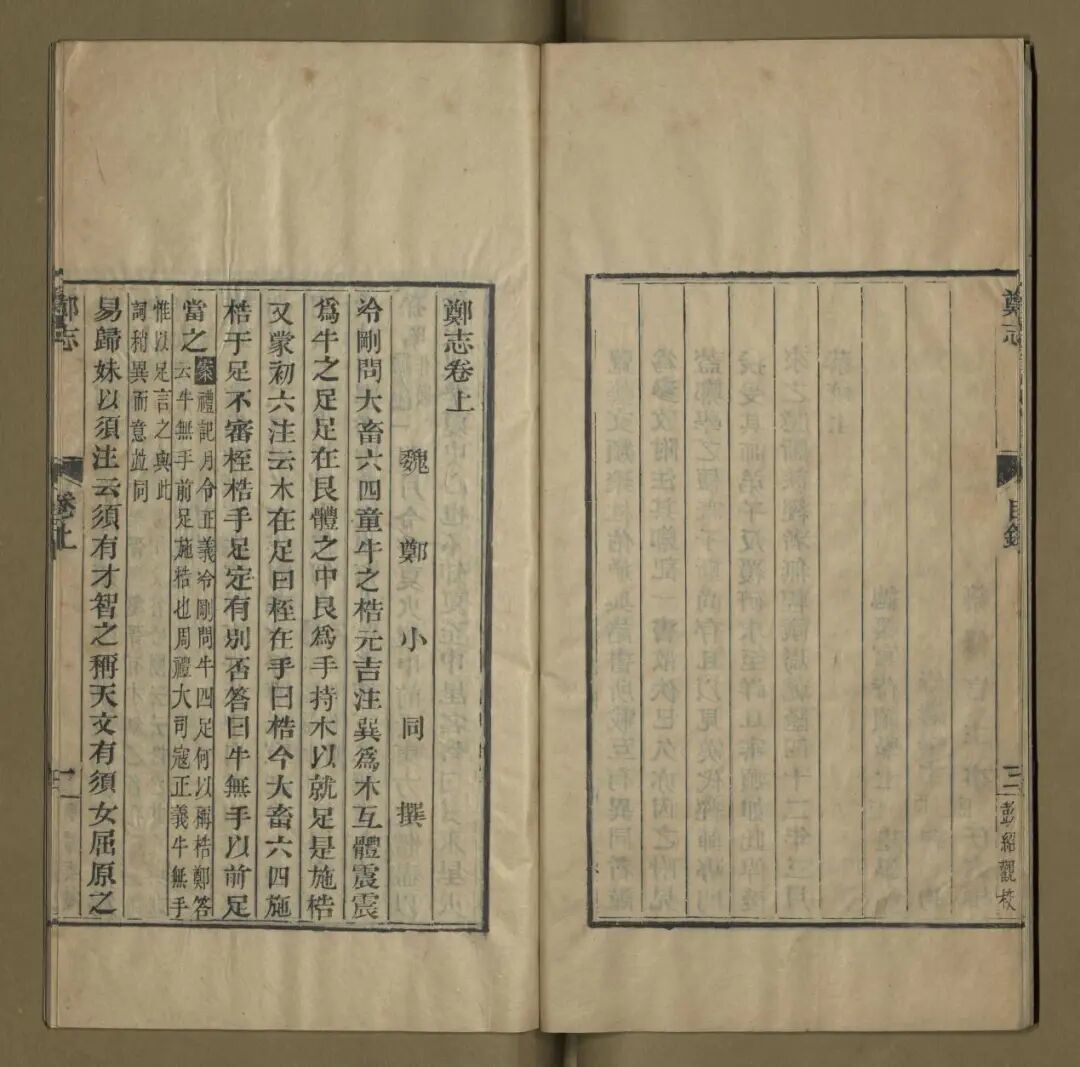 鄭志
目錄
三
彭紹觀校
鄭志卷上
魏鄭小同撰
冷剛問大畜六四童牛之梏元吉注巽爲木互體震震
爲牛之足足在艮體之中艮爲手持木以就足是施梏
又蒙初六注云木在足曰桎在手曰梏今大畜六四施
梏于足不審桎梏手足定有別否答曰牛無手以前足
當之案禮記月令正義冷剛問牛四足何以稱梏鄭答
云牛無手前足施梏也周禮大司寇正義牛無手
惟以足言之與此
詞稍異而意並同
易歸妹以須注云須有才智之稱天文有須女屈原之
鄭志
卷上
一